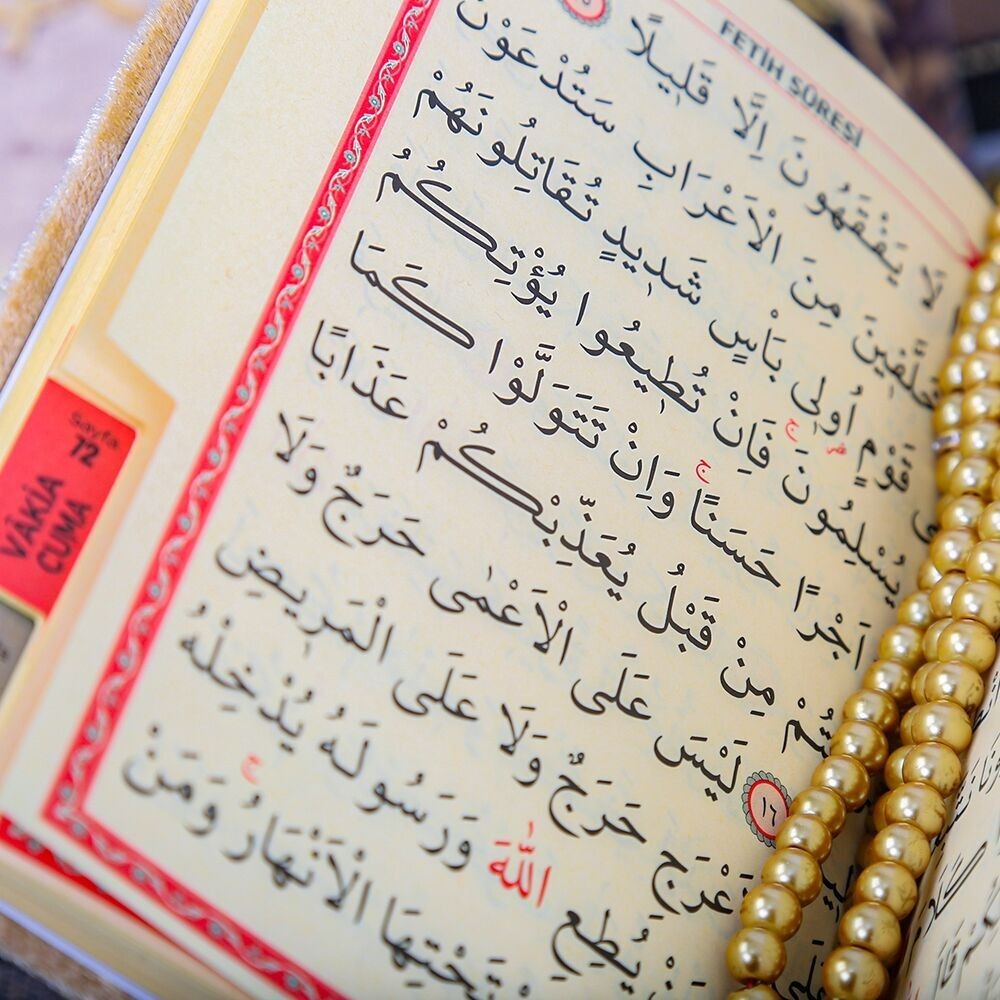 FETİH SÛRESİ
لَا يَفْقَهُونَ اِلَّا قَلٖيلًا
مِنَ الْاَعْرَابِ سَتُدْعَوْنَ
قَوْمٍ اُولٖى بَاْسٍ شَدٖيدٍ تُقَاتِلُونَهُمْ
يُسْلِمُونَ فَاِنْ تُطٖيعُوا يُؤْتِكُمُ
اَجْرًا حَسَنًا وَاِنْ تَتَوَلَّوْا كَمَا
مِنْ قَبْلُ يُعَذِّبْكُمْ عَذَابًا
١٦ لَيْسَ عَلَى الْاَعْمٰى حَرَجٌ وَلَا
حَرَجٌ وَلَا عَلَى الْمَرٖيضِ
يُطِعِ اللّٰهَ وَرَسُولَهُ يُدْخِلْهُ
تَحْتِهَا الْاَنْهَارُ وَمَنْ
Sayfa
72
VÂKİA
CUMA